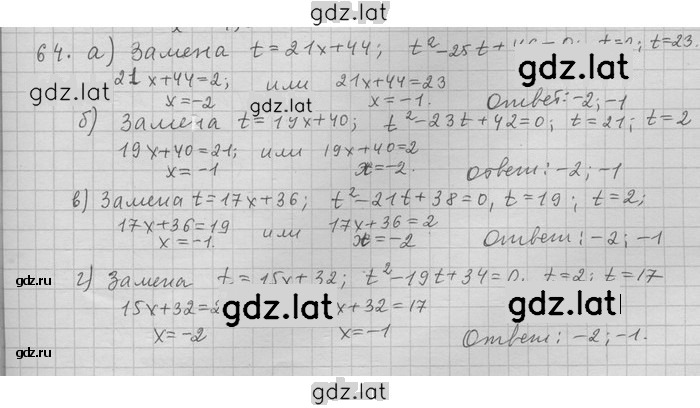 gdz.lat
64. а) Замена t = 21x+44; t²-25t+ t=23.
gdz.lat
21x+44=2; или 21x+44=23
gdz.lat
x=-2 gdz.lat x=-1. Ответ: -2; -1
б) Замена t = 19x+40; t²-23t+42=0; t=21; t=2
19x+40=21; или 19x+40=2
x=-1 x=-2. Ответ: -2; -1
в) Замена t=17x+36; t²-21t+38=0, t=19; t=2;
17x+36=19 или 17x+36=2
x=-1. x=-2 Ответ: -2; -1
gdz.ru
г) Замена t = 15x+32; t²-19t+34=0. t=2; t=17
15x+32=2 gdz.lat x+32=17 gdz.lat
x=-2 x=-1 Ответ: -2; -1.
gdz.ru
gdz.lat